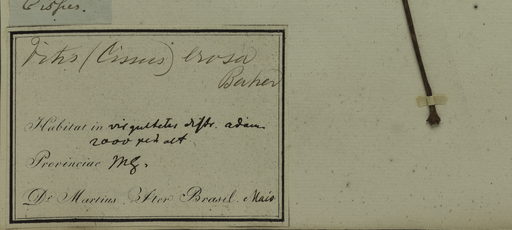 Crspes.
Vitis (Cissus) erosa
Baker
Habitat in distr. adam.
2000 ped alt.
Provinciae MG.
Dr. Martius. Iter Brasil. Maio